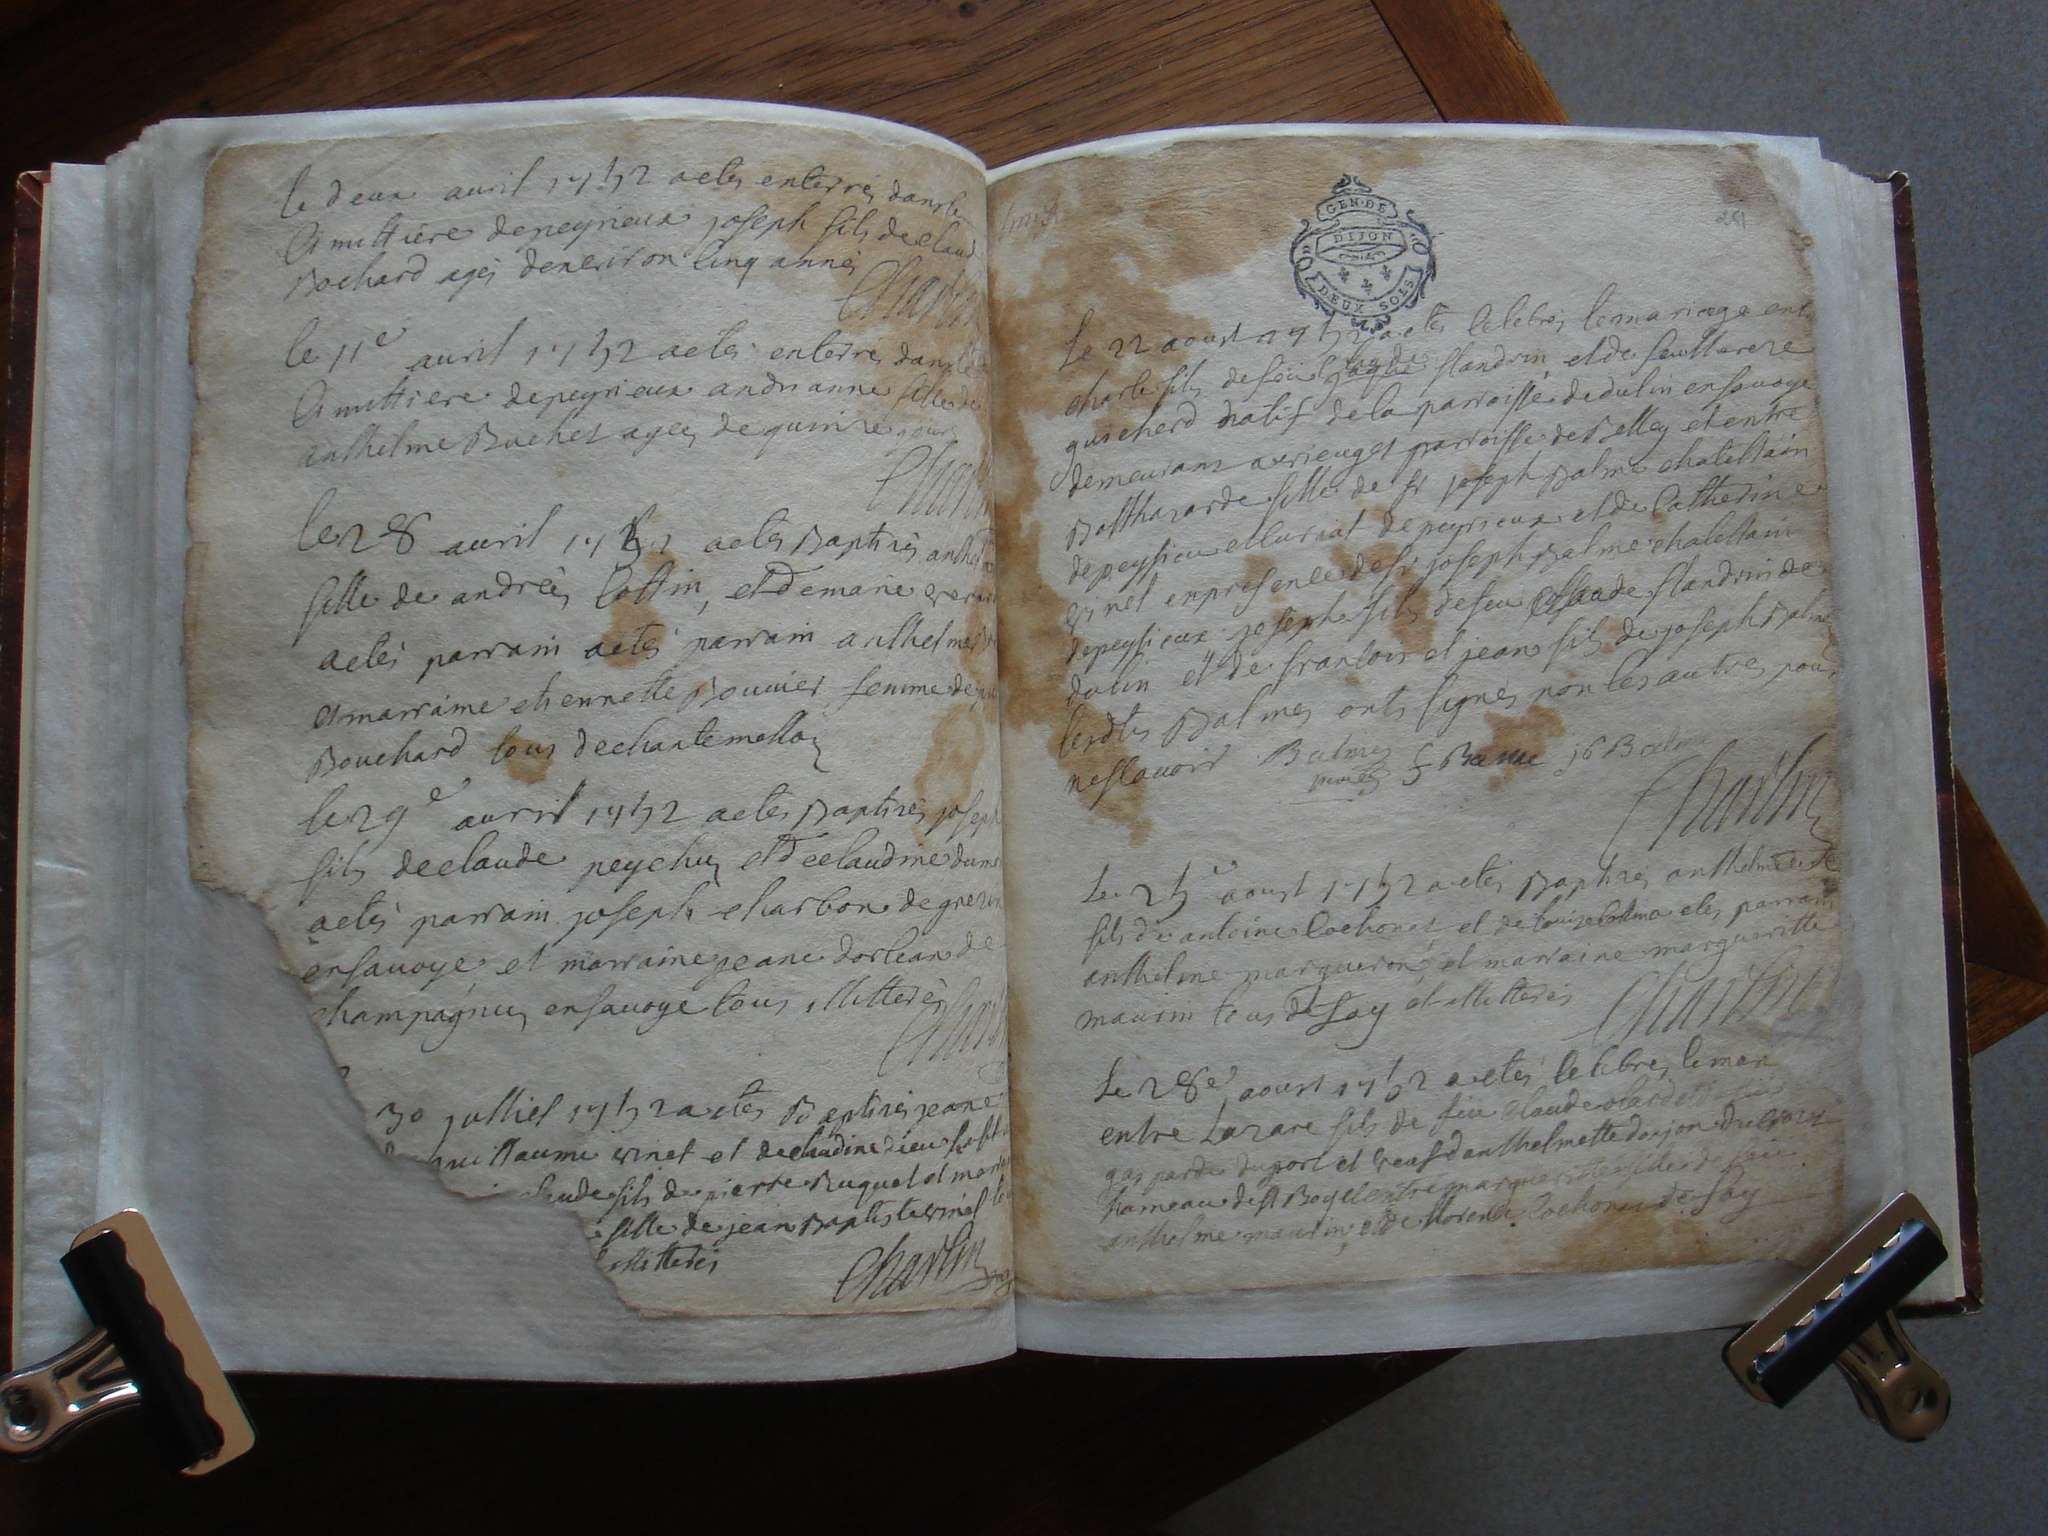 le deux avril 1752 a etes enterrés dans le
Cimettiere de peyrieux joseph fils de claud
Bochard agés denviron cinq annés
Charlin
le 11e avril 1752 a etes enterrés dans le
Cimettiere de peyrieux andrianne fille de
anthelme Buchet ageé de quinze jours
Charlin
le 28 avril 1752 a etes Baptisés
fille de andrées Cottin, et de marie
a etes parrain a etes parrain anthelme
et marraine etiennette Bouvier femme de
Bouchard tous de chantemelloz
le 29e avril 1752 a etes Baptisés joseph
fils de claude peychuz et de claudine
a etes parrain joseph charbon de grezin
en savoye et marraine jeane dorlean de
champagnuz en savoye tous illitterés
Charlin
30 julliet 1752 a etes Baptisés jeane
guillaume vinet et de cladine dieu
claude fils de pierre Buquet et
fille de jean Baptiste vinet
illitterés
Charlin
281
GEN·DE
DIJON
DEUX SOLS
Le 22 aoust 1752 a etes celebrés le mariage entre
charle fils de feu claude flandrin et de feu therese
guicherd natif de la parroisse de dulin en savoye
demeurant a parroisse de Belley et entre
Balthazarde fille de sr joseph Balme chatellain
de peyrieux et curial de peyrieux et de Catherine
vinet en presence de sr joseph Balme chatellain
de peyrieux joseph fils de feu claude flandrin de
dulin et de francois et jean fils de joseph Balme
lesdts Balmes onts signés non les autres pour
ne scavoir Balmes Balme Balme
Charlin
Le 25e aoust 1752 a etes Baptisés anthelme
fils de antoine Cochonat et de louise Cottin a etes parrain
anthelme margueron et marraine margueritte
maurin tous de Fay et illitterés Charlin
Le 28e aoust 1752 a etes celebrés le mari
entre Lazare fils de feu claude
du port et veuf danthelmette dojon du
hameau de st Boy et entre margueritte fille de feu
anthelme maurin et de Cochonat de Fay